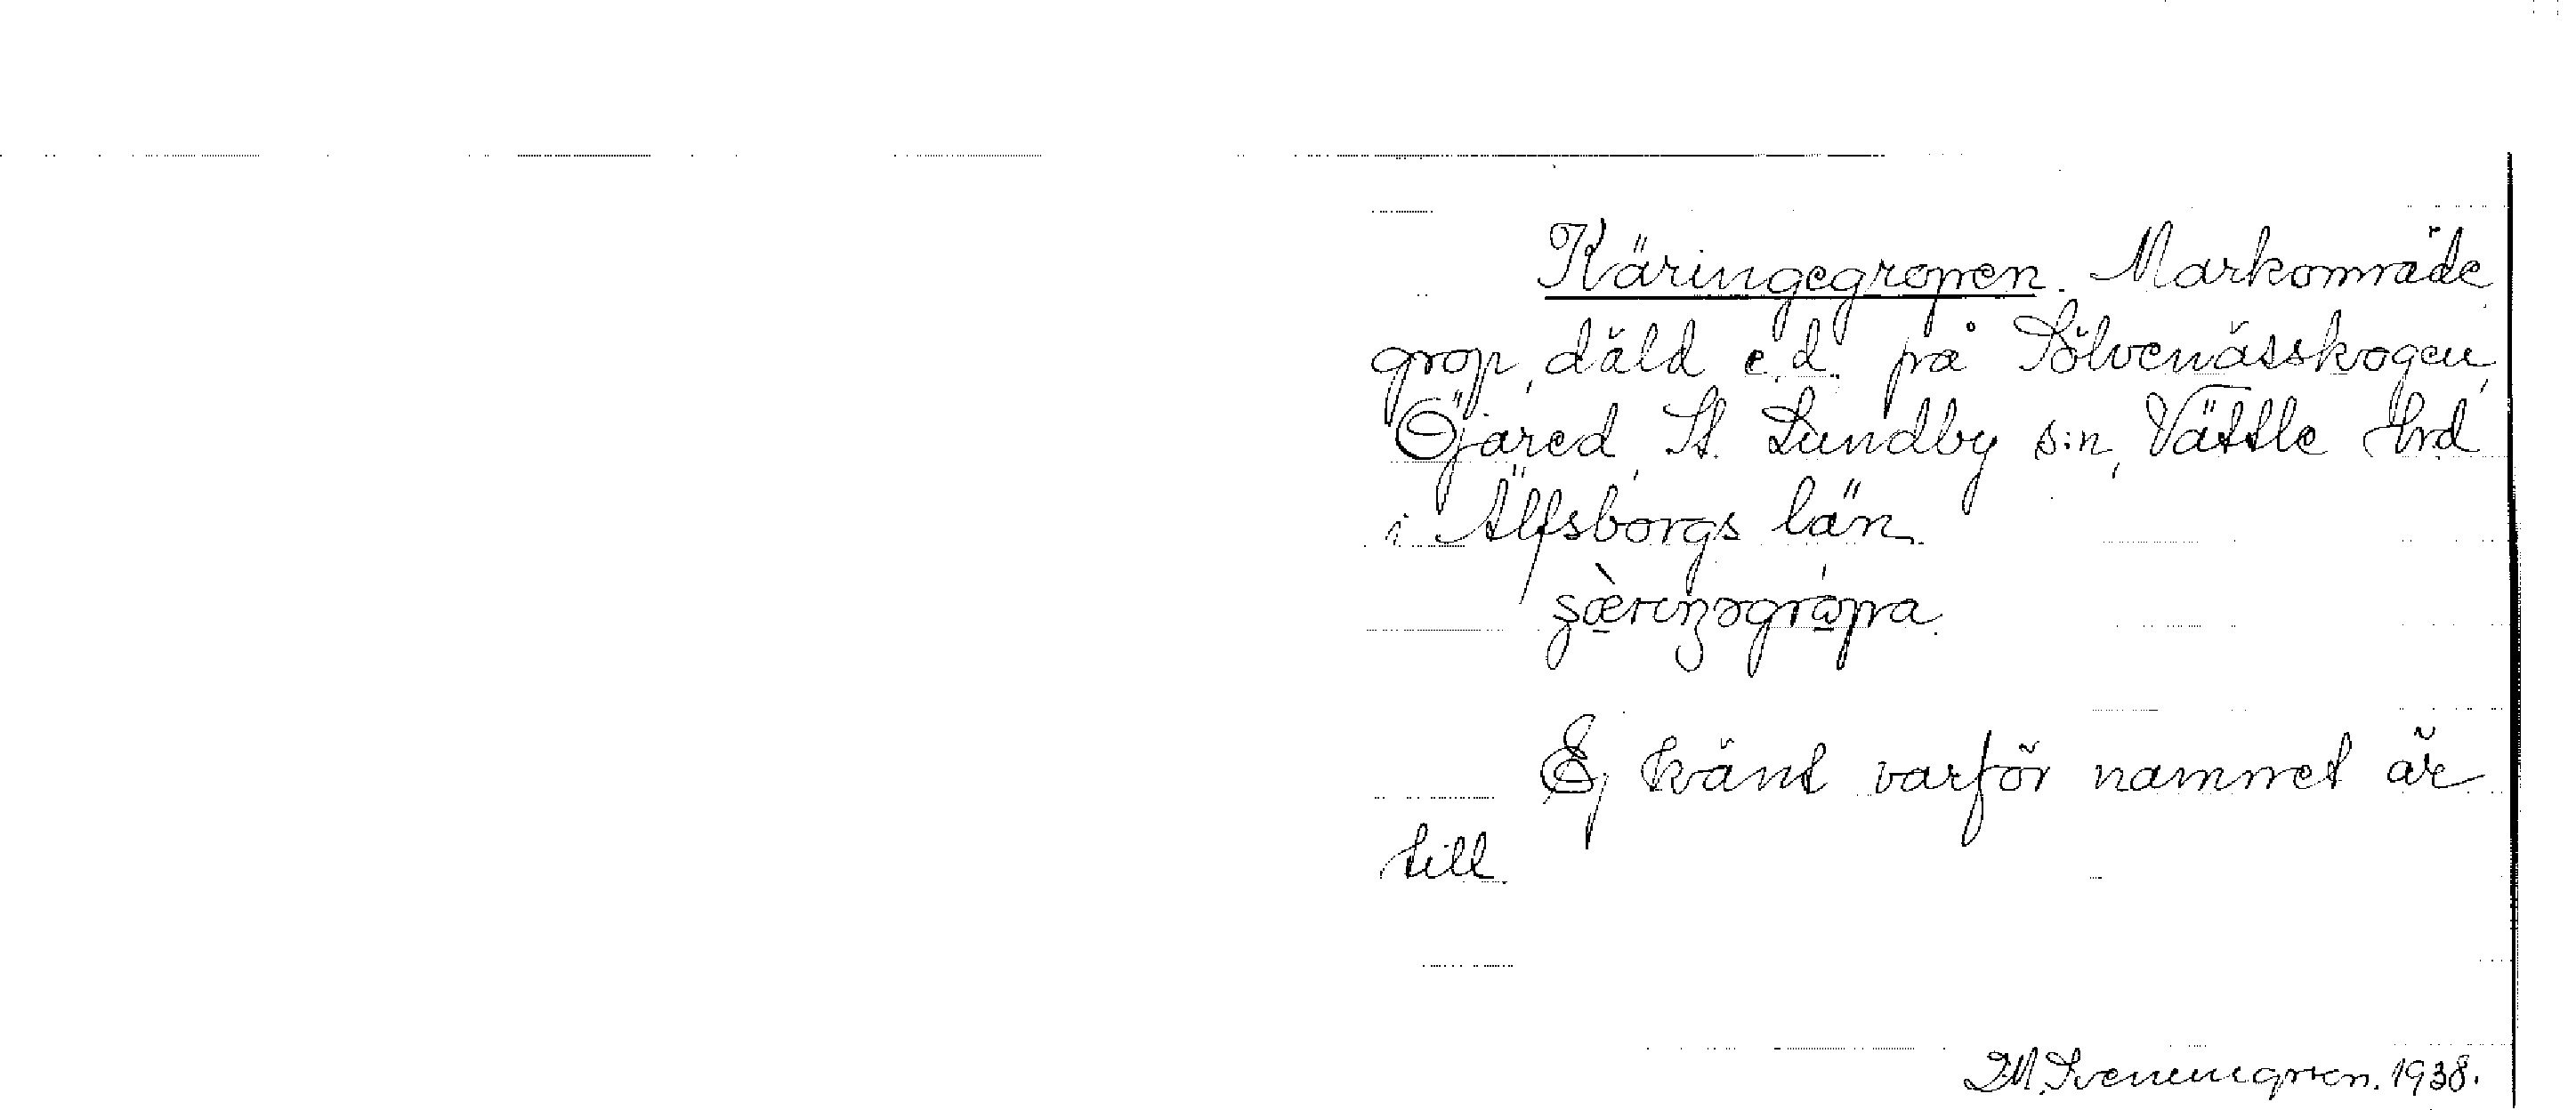 Käringegropen. Markområde
grop, däld e.d. på Sölvenässkogen,
Öjared, St. Lundby s:n, Vättle hrd
i Älfsborgs län.
Ej känt varför namnet är
till.
1938.